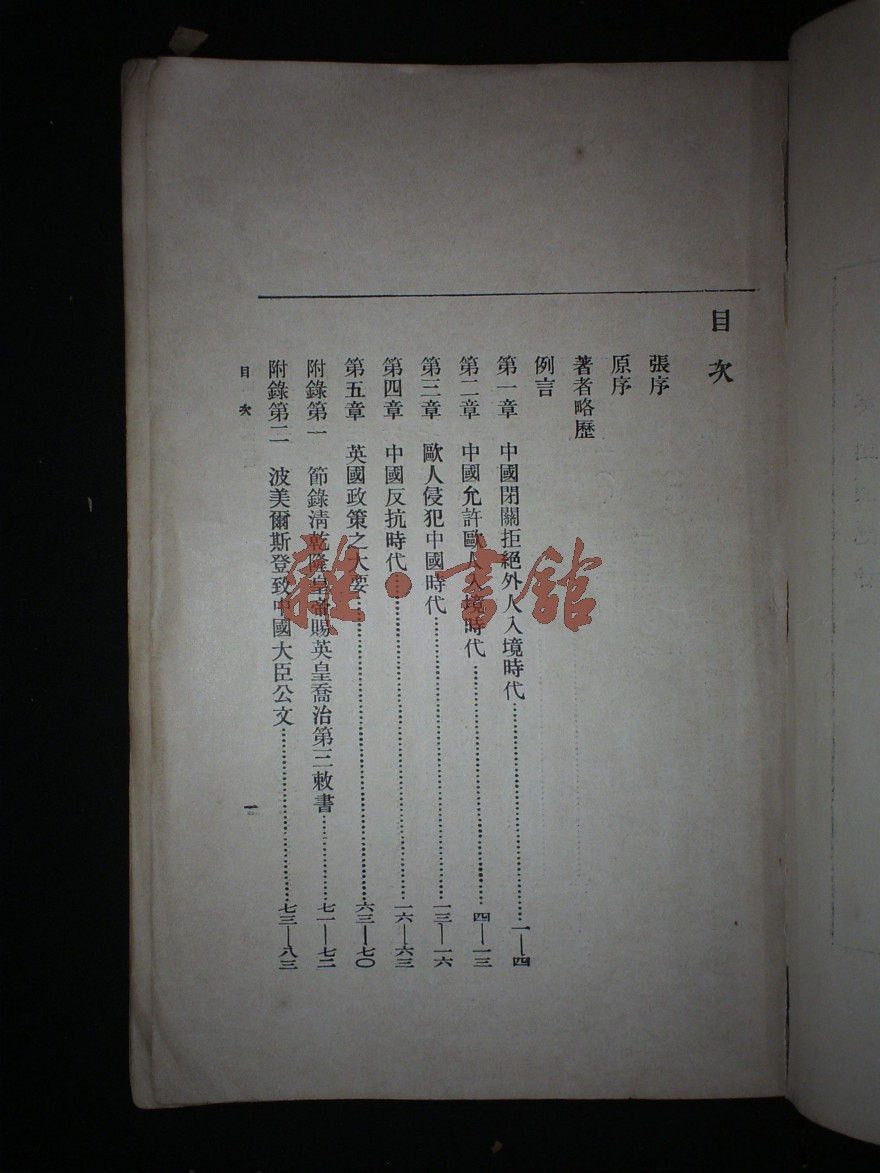 目次
張序
原序
著者略歷
例言
第一章　中國閉關拒絕外人入境時代……一—四
第二章　中國允許歐人入境時代……四—一三
第三章　歐人侵犯中國時代……一三—一六
第四章　中國反抗時代……一六—六三
第五章　英國政策之大要……六三—七〇
附錄第一　節錄清乾隆皇帝賜英皇喬治第三敕書……七一—七二
附錄第二　波美爾斯登致中國大臣公文……七三—八三
目次
一
雜·書館